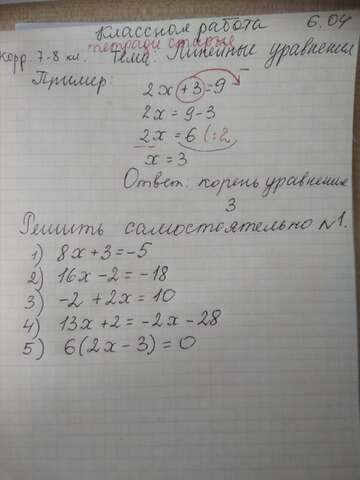 Классная работа 6.04
тетради старые
Корр. 7-8 кл. Тема: Линейные уравнения
Пример:
2x+3=9
2x=9-3
2x=6 (:2
x=3
Ответ: корень уравнения
3
Решить самостоятельно №1.
1) 8x+3=-5
2) 16x-2=-18
3) -2+2x=10
4) 13x+2=-2x-28
5) 6(2x-3)=0